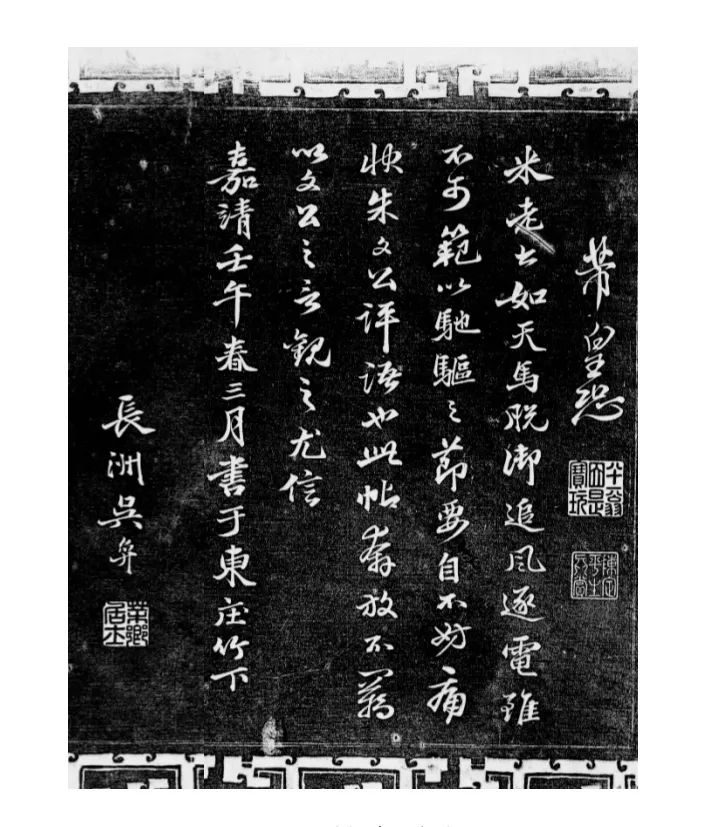 芾皇恐
米老書如天馬脱御追風逐電雖
不可範以馳驅之節要自不妨痛
快朱文公評語也此帖奔放不羈
以文公之言觀之尤信
嘉靖壬午春三月書于東庄竹下
長洲吳奕